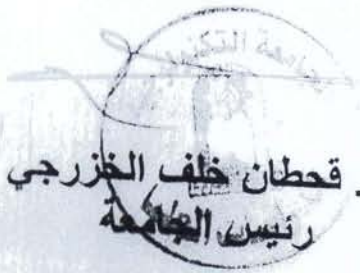 جامعة التكنو
. قحطان خلف الخزرجي
رئيس الجامعة